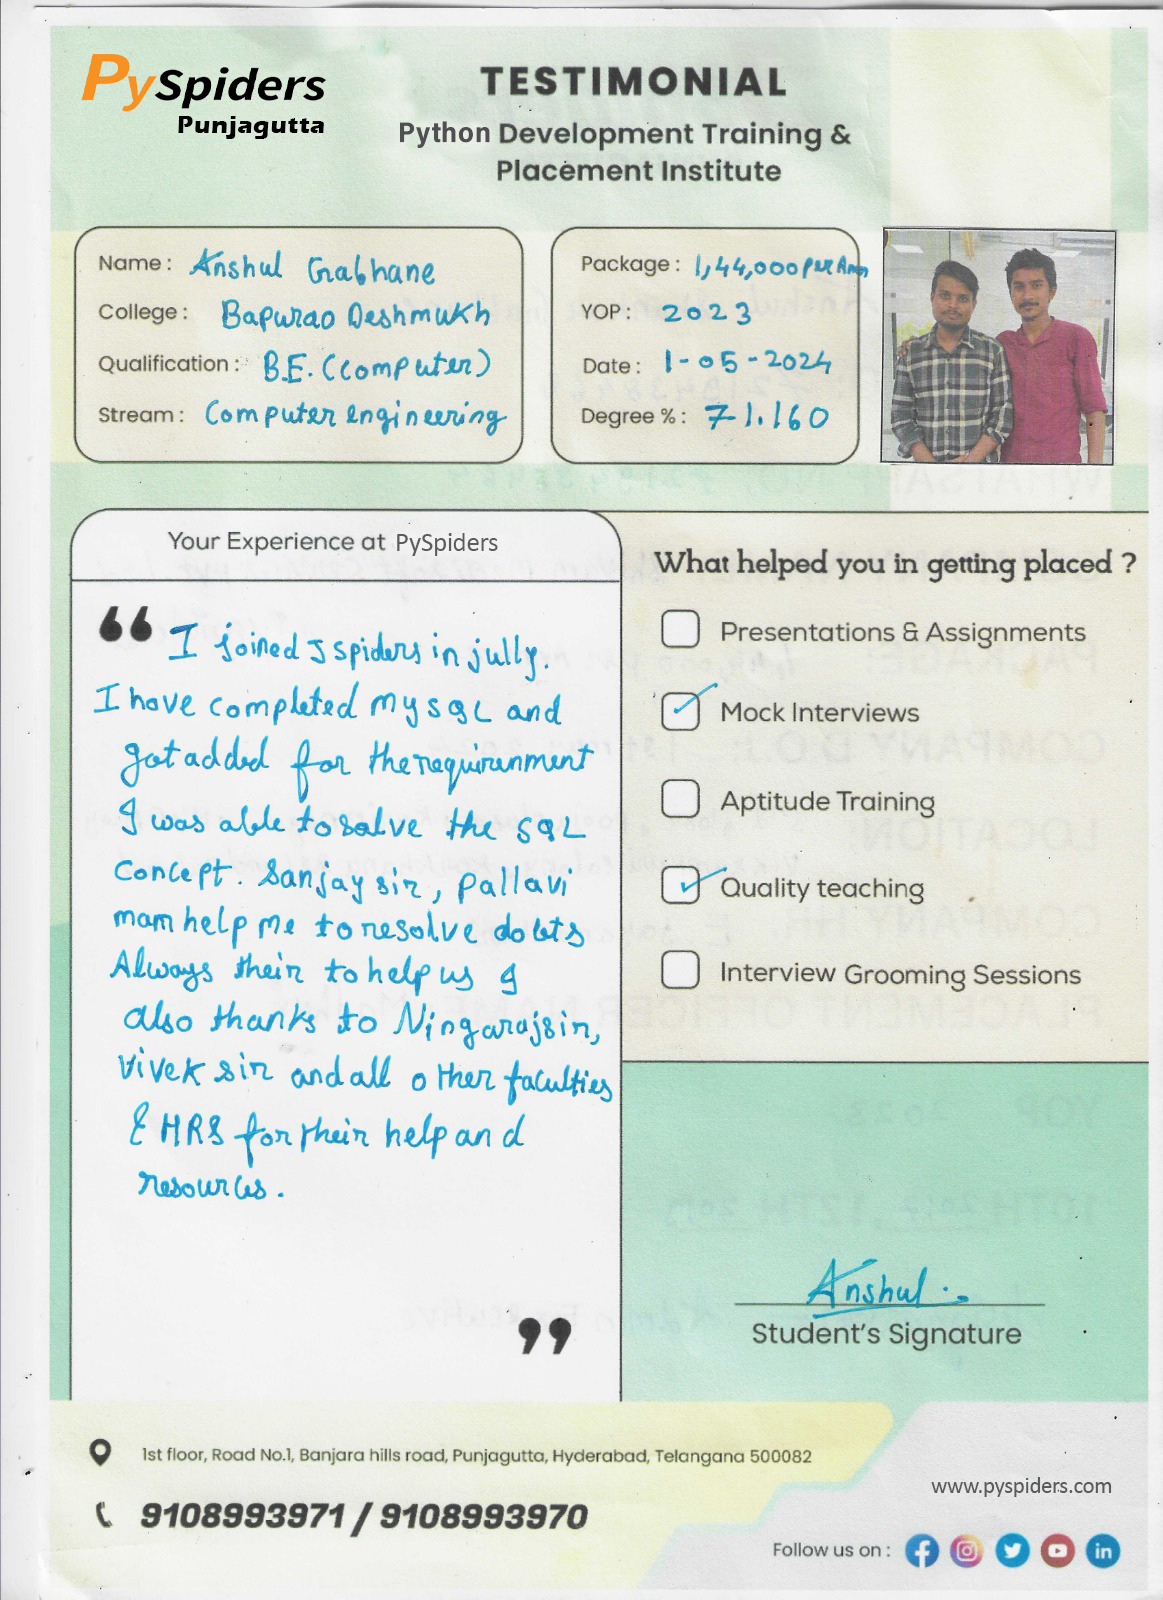 PySpiders
Punjagutta
TESTIMONIAL
Python Development Training &
Placement Institute
Name : Anshul Gabhane
College : Bapurao Deshmukh
Qualification : B.E. (Computer)
Stream : Computer engineering
Package : 1,44,000 per Anm
YOP : 2023
Date : 1-05-2024
Degree % : 71.160
Your Experience at PySpiders
“ I joined J spiders in jully.
I have completed my sql and
got added for the requirenment
I was able to solve the SQL
Concept. Sanjay sir, Pallavi
mam help me to resolve dobts
Always their to help us I
also thanks to Ningaraj sir,
Vivek sir and all other faculties
& HRS for their help and
resources.
”
What helped you in getting placed ?
Presentations & Assignments
Mock Interviews
Aptitude Training
Quality teaching
Interview Grooming Sessions
Anshul
Student's Signature
1st floor, Road No.1, Banjara hills road, Punjagutta, Hyderabad, Telangana 500082
9108993971 / 9108993970
www.pyspiders.com
Follow us on :